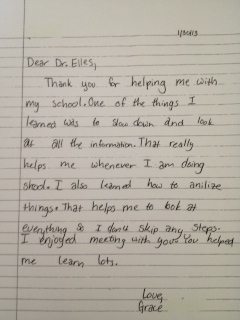 1/30/13
Dear Dr. Elles,
Thank you for helping me with
my school. One of the things I
learned was to slow down and look
at all the information. That really
helps me whenever I am doing
shool. I also learned how to anilize
things. That helps me to look at
everything so I don't skip any steps.
I enjoyed meeting with you. You helped
me learn lots.
Love,
Grace